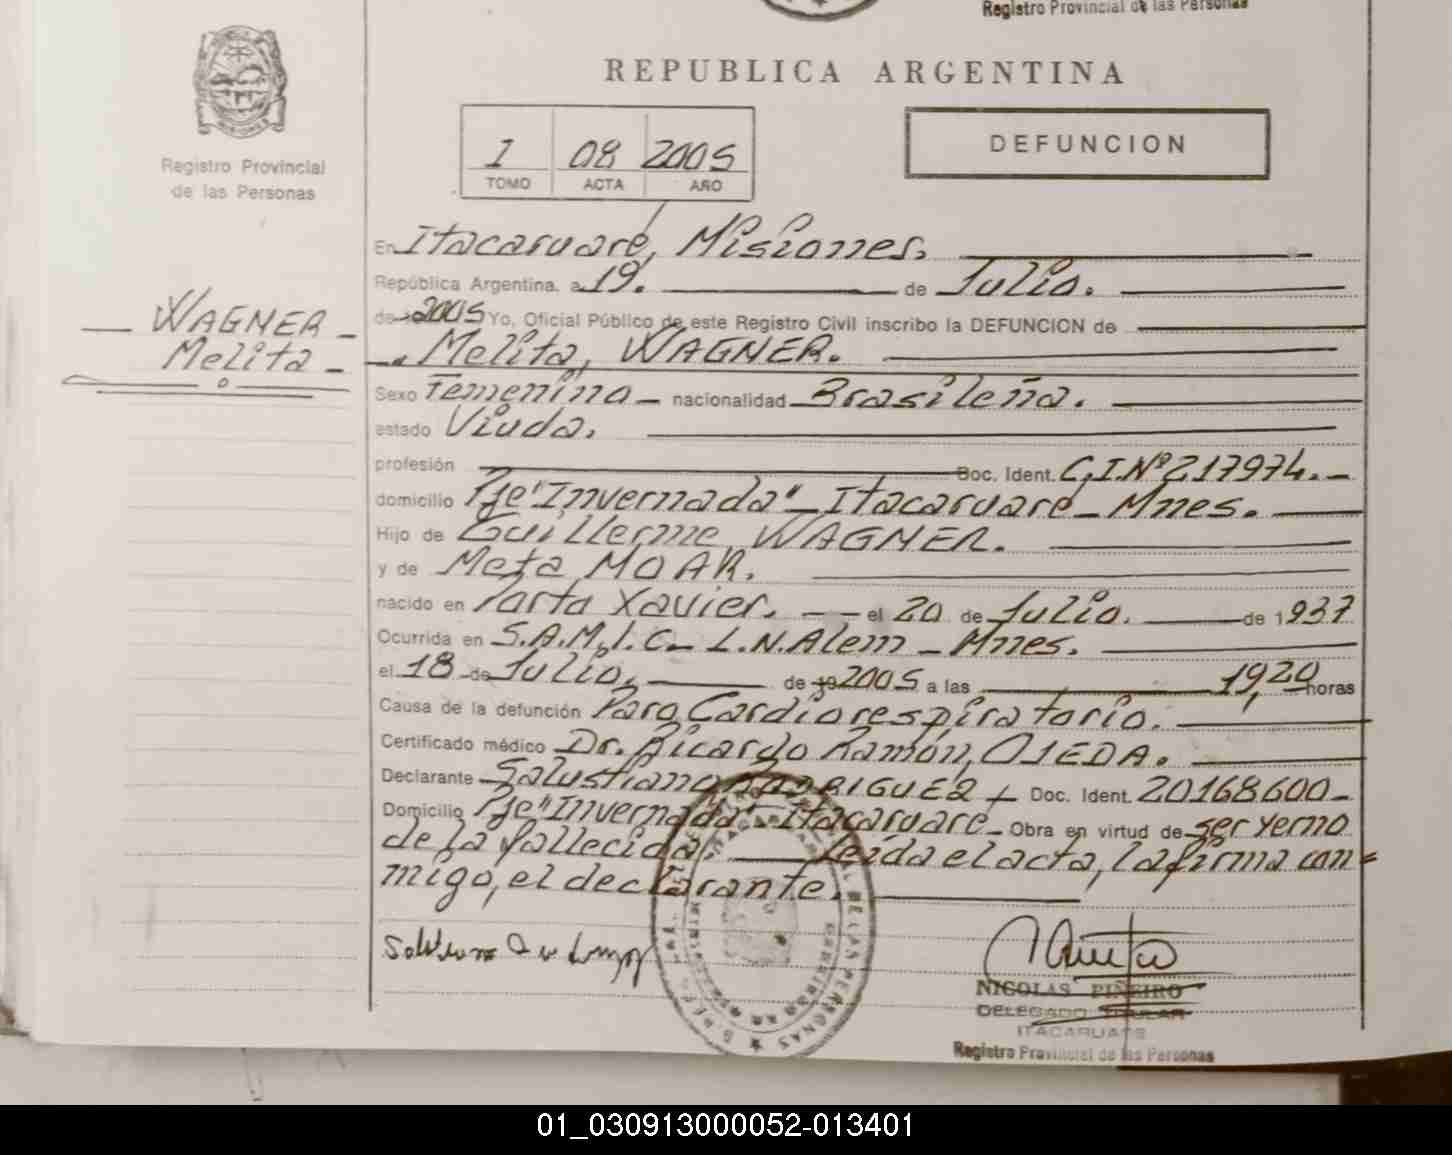 Registro Provincial de las Personas
REPUBLICA ARGENTINA
MISIONES
Registro Provincial
de las Personas
I 08 2005
TOMO ACTA AÑO
DEFUNCION
En Itacaruare, Misiones.
República Argentina. a 19. de Julio.
de 2005 Yo, Oficial Público de este Registro Civil inscribo la DEFUNCION de
WAGNER
Melita
Melita, WAGNER.
Sexo Femenina nacionalidad Brasileña.
estado Viuda.
profesión Doc. Ident. C.I.Nº217974.
domicilio Pje "Invernada" Itacaruare - Mnes.
Hijo de Guillerme WAGNER.
y de Meta MOAR.
nacido en Porto Xavier. el 20 de Julio. de 1937
Ocurrida en S.A.M.I.C. L.N.Alem - Mnes.
el 18 de Julio. de 19 2005 a las 19,20 horas
Causa de la defunción Paro Cardiorespiratorio.
Certificado médico Dr. Ricardo Ramón, OJEDA.
Declarante Salustiano RODRIGUEZ Doc. Ident. 20168600
Domicilio Pje "Invernada" - Itacaruare - Obra en virtud de ser yerno
de la fallecida. Leída el acta, la firma con=
migo, el declarante.
NICOLAS PIÑEIRO
DELEGADO TITULAR
ITACARUARE
Registro Provincial de las Personas
01_030913000052-013401